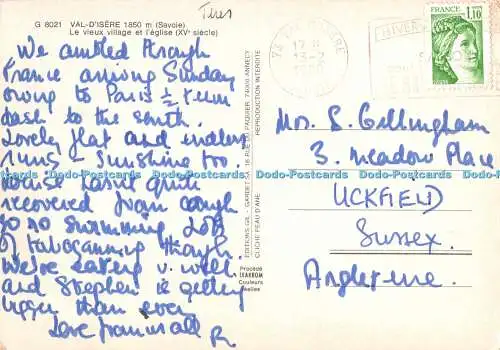 Tères
G 8021 VAL-D'ISÈRE 1850 m (Savoie)
Le vieux village et l'église (XVᵉ siècle)
We ambled through
France arriving Sunday
owing to Paris ½ term
dash to the south.
Lovely flat and endless
runs – Sunshine too.
hasn't quite
recovered from cough
so no swimming. Lots
of tobogganing though.
We're eating v. well
and Stephen is getting
bigger than ever
Love from us all R
EDITIONS GIL - GARDET SA 18 RUE DU PAQUIER 74000 ANNECY
REPRODUCTION INTERDITE
CLICHÉ FEAU D'ANE
Procédé
LEAKROM
Couleurs
réelles
17 H
13-2
HIVER
1,10
Mrs. S. Gillingham
3. Meadow Place
UCKFIELD
Sussex.
Angleterre.
Dodo-Postcards Dodo-Postcards Dodo-Postcards Dodo-Postcards Dodo-Postcards Dodo-Postcards